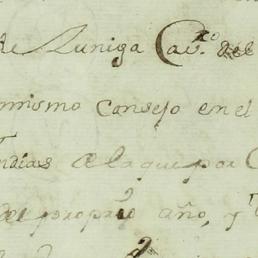 de Zuniga Cav.ro del
mismo Consejo en el
Indias a la que por C
del proprio año, y